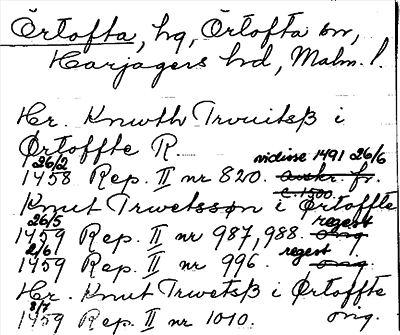 Örtofta, hg, Örtofta sn,
Harjagers hd, Malm. l.
Hr. Knwth Trwuitsß i
Ørtoffte R.
26/2 vidisse 1491 26/6
1458 Rep. II nr 820. avskr. fr.
c. 1500.
Knut Trwetssøn i Ørtoffte
26/5 regest
1459 Rep. II nr 987, 988. orig.
2/6 regest
1459 Rep. II nr 996. orig.
Hr. Knut Trwetsß i Ørtoffte
8/7 orig.
1459 Rep. II nr 1010.